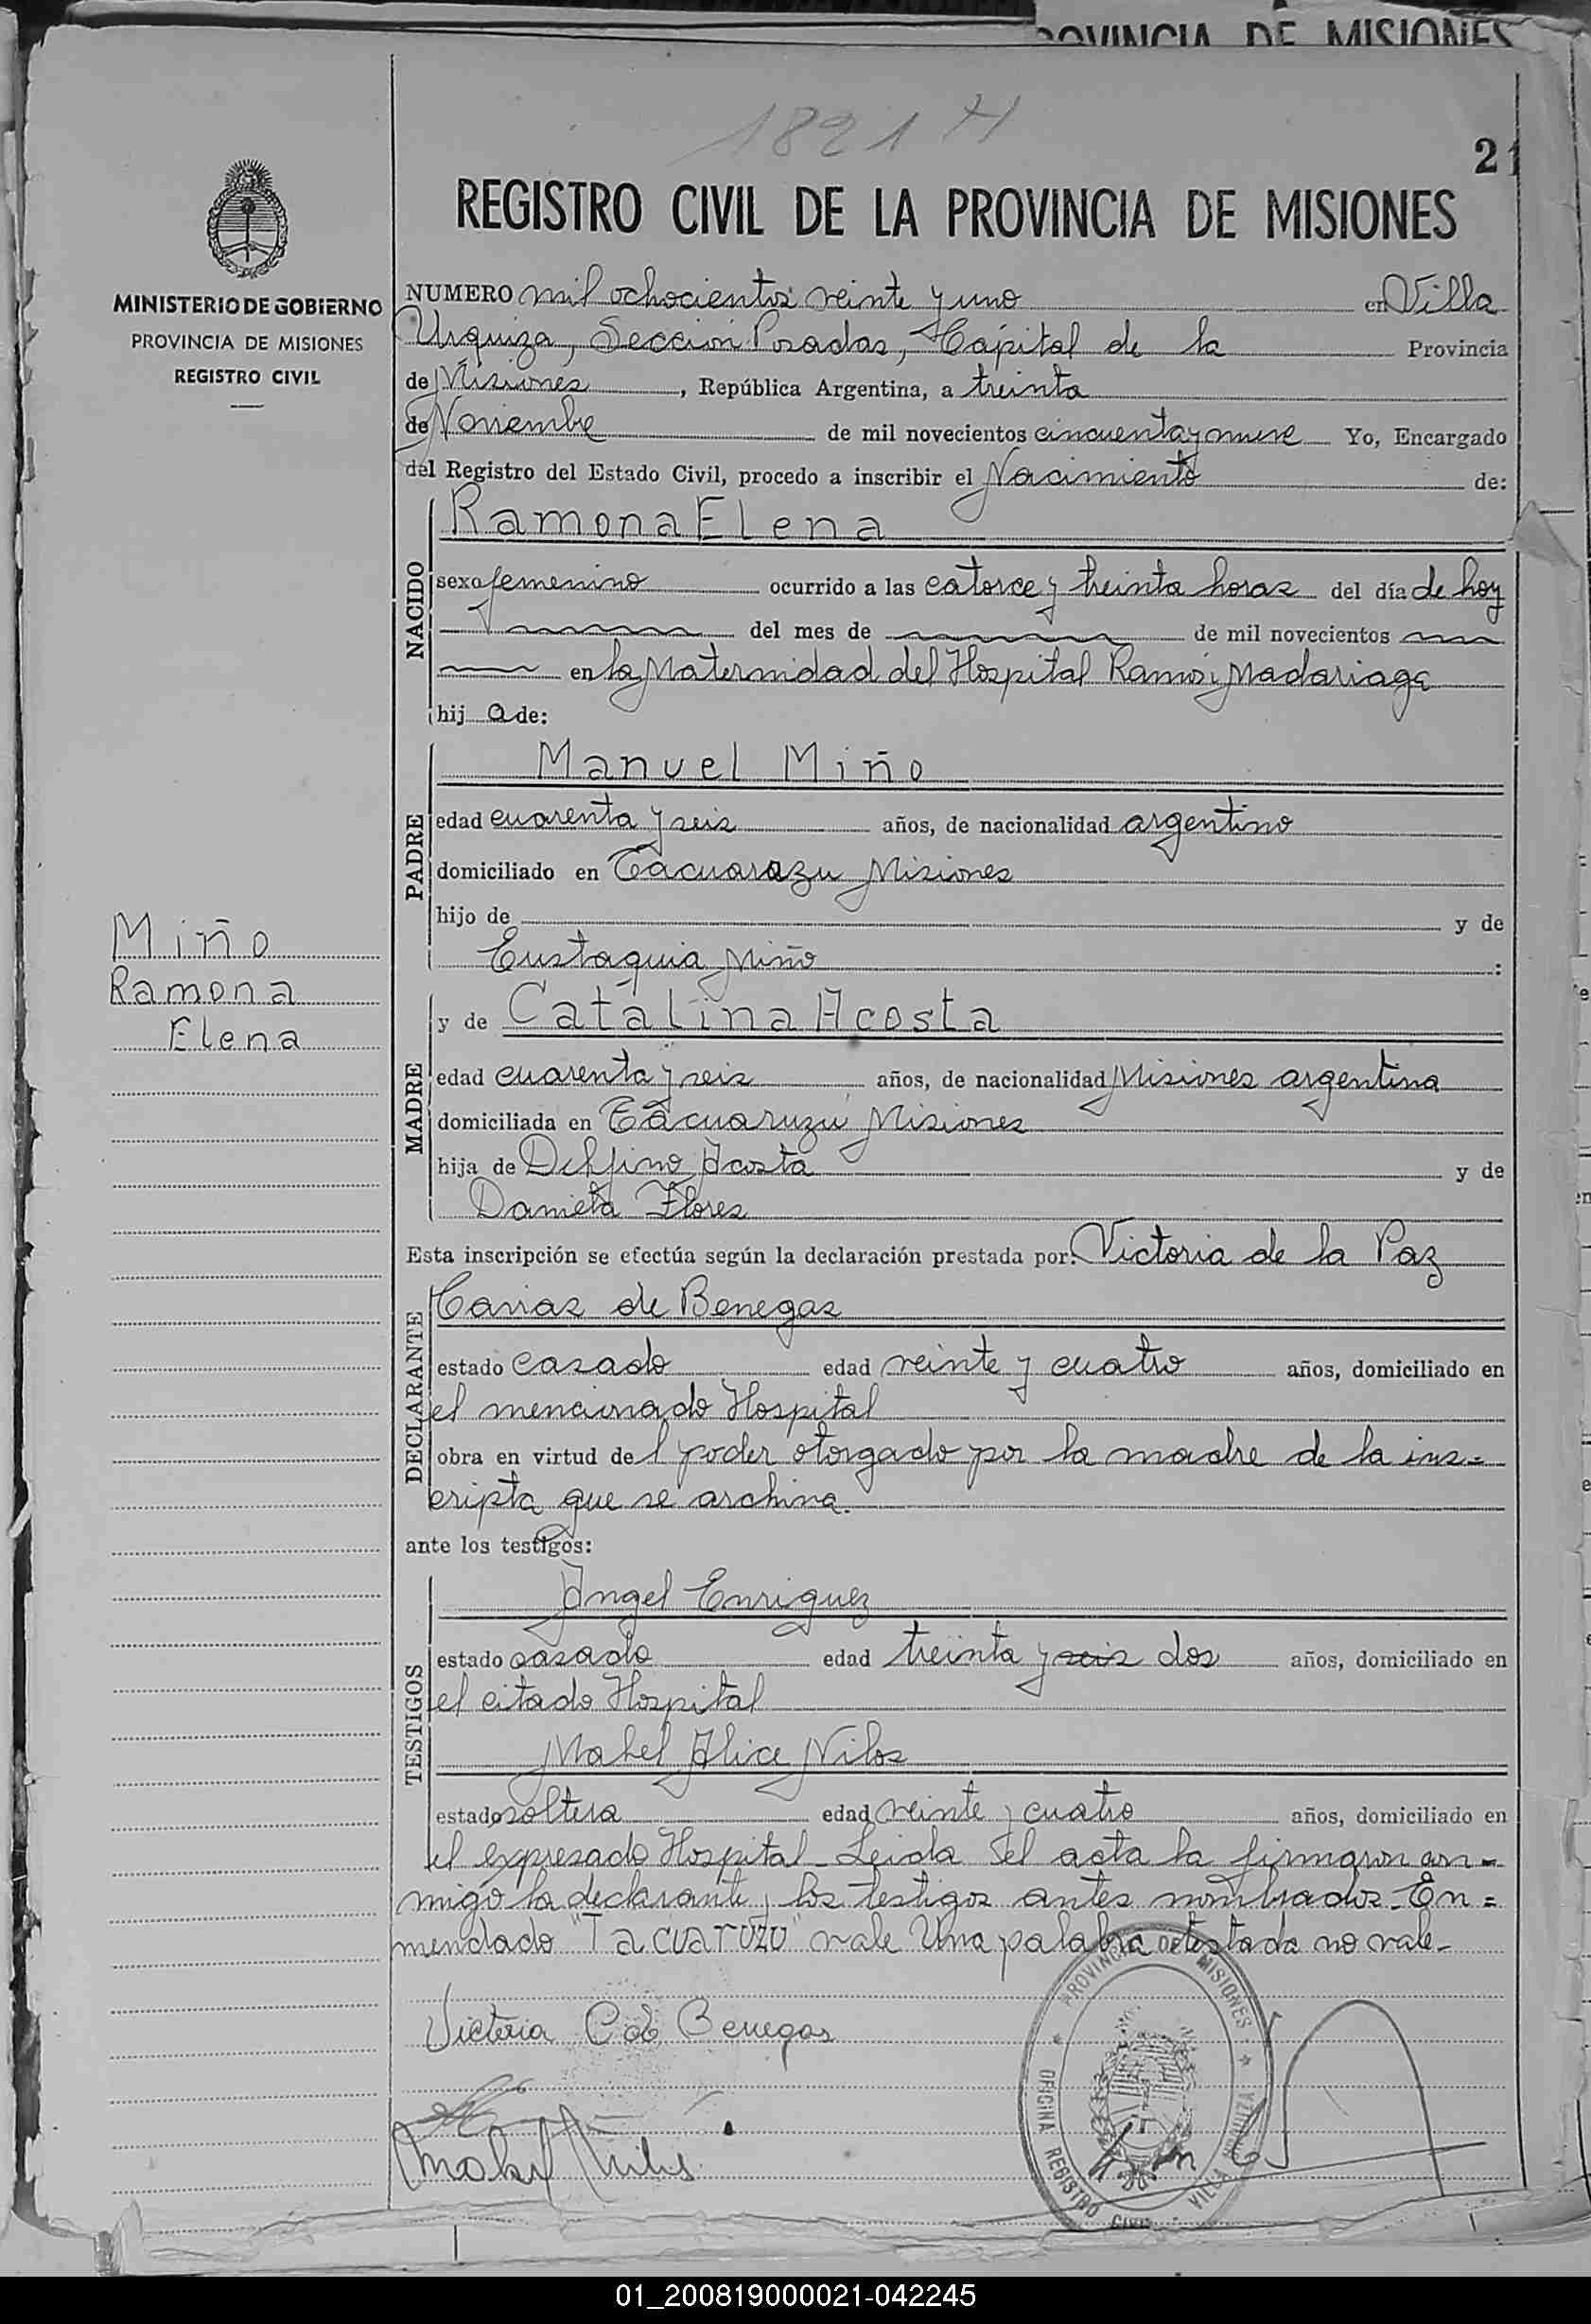 PROVINCIA DE MISIONES
1821 H
21
REGISTRO CIVIL DE LA PROVINCIA DE MISIONES
MINISTERIO DE GOBIERNO
PROVINCIA DE MISIONES
REGISTRO CIVIL
NUMERO mil ochocientos veinte y uno en Villa
Urquiza, Sección Posadas, Capital de la Provincia
de Misiones, República Argentina, a treinta
de Noviembre de mil novecientos cincuenta y nueve Yo, Encargado
del Registro del Estado Civil, procedo a inscribir el Nacimiento de:
NACIDO
Ramona Elena
sexo femenino ocurrido a las catorce y treinta horas del día de hoy
del mes de de mil novecientos
en la Maternidad del Hospital Ramón Madariaga
hij a de:
PADRE
Manuel Miño
edad cuarenta y seis años, de nacionalidad argentino
domiciliado en Tacuarazu Misiones
hijo de y de
Eustaquia Miño :
Miño
Ramona
Elena
MADRE
y de Catalina Acosta
edad cuarenta y seis años, de nacionalidad Misiones argentina
domiciliada en Tacuaruzú Misiones
hija de Delfino Acosta y de
Daniela Flores
Esta inscripción se efectúa según la declaración prestada por: Victoria de la Paz
DECLARANTE
Canias de Benegas
estado casado edad veinte y cuatro años, domiciliado en
el mencionado Hospital
obra en virtud de l poder otorgado por la madre de la ins=
cripta que se archiva.
ante los testigos:
TESTIGOS
Angel Enriquez
estado casado edad treinta y seis dos años, domiciliado en
el citado Hospital
Mabel Alice Nilos
estado soltera edad veinte y cuatro años, domiciliado en
el expresado Hospital - Leida el acta la firmaron con=
migo la declarante y los testigos antes nombrados - En=
mendado "Tacuaruzu" vale Una palabra testada no vale -
Victoria C de Benegas
PROVINCIA DE MISIONES
OFICINA REGISTRO CIVIL
VILLA URQUIZA
01_200819000021-042245